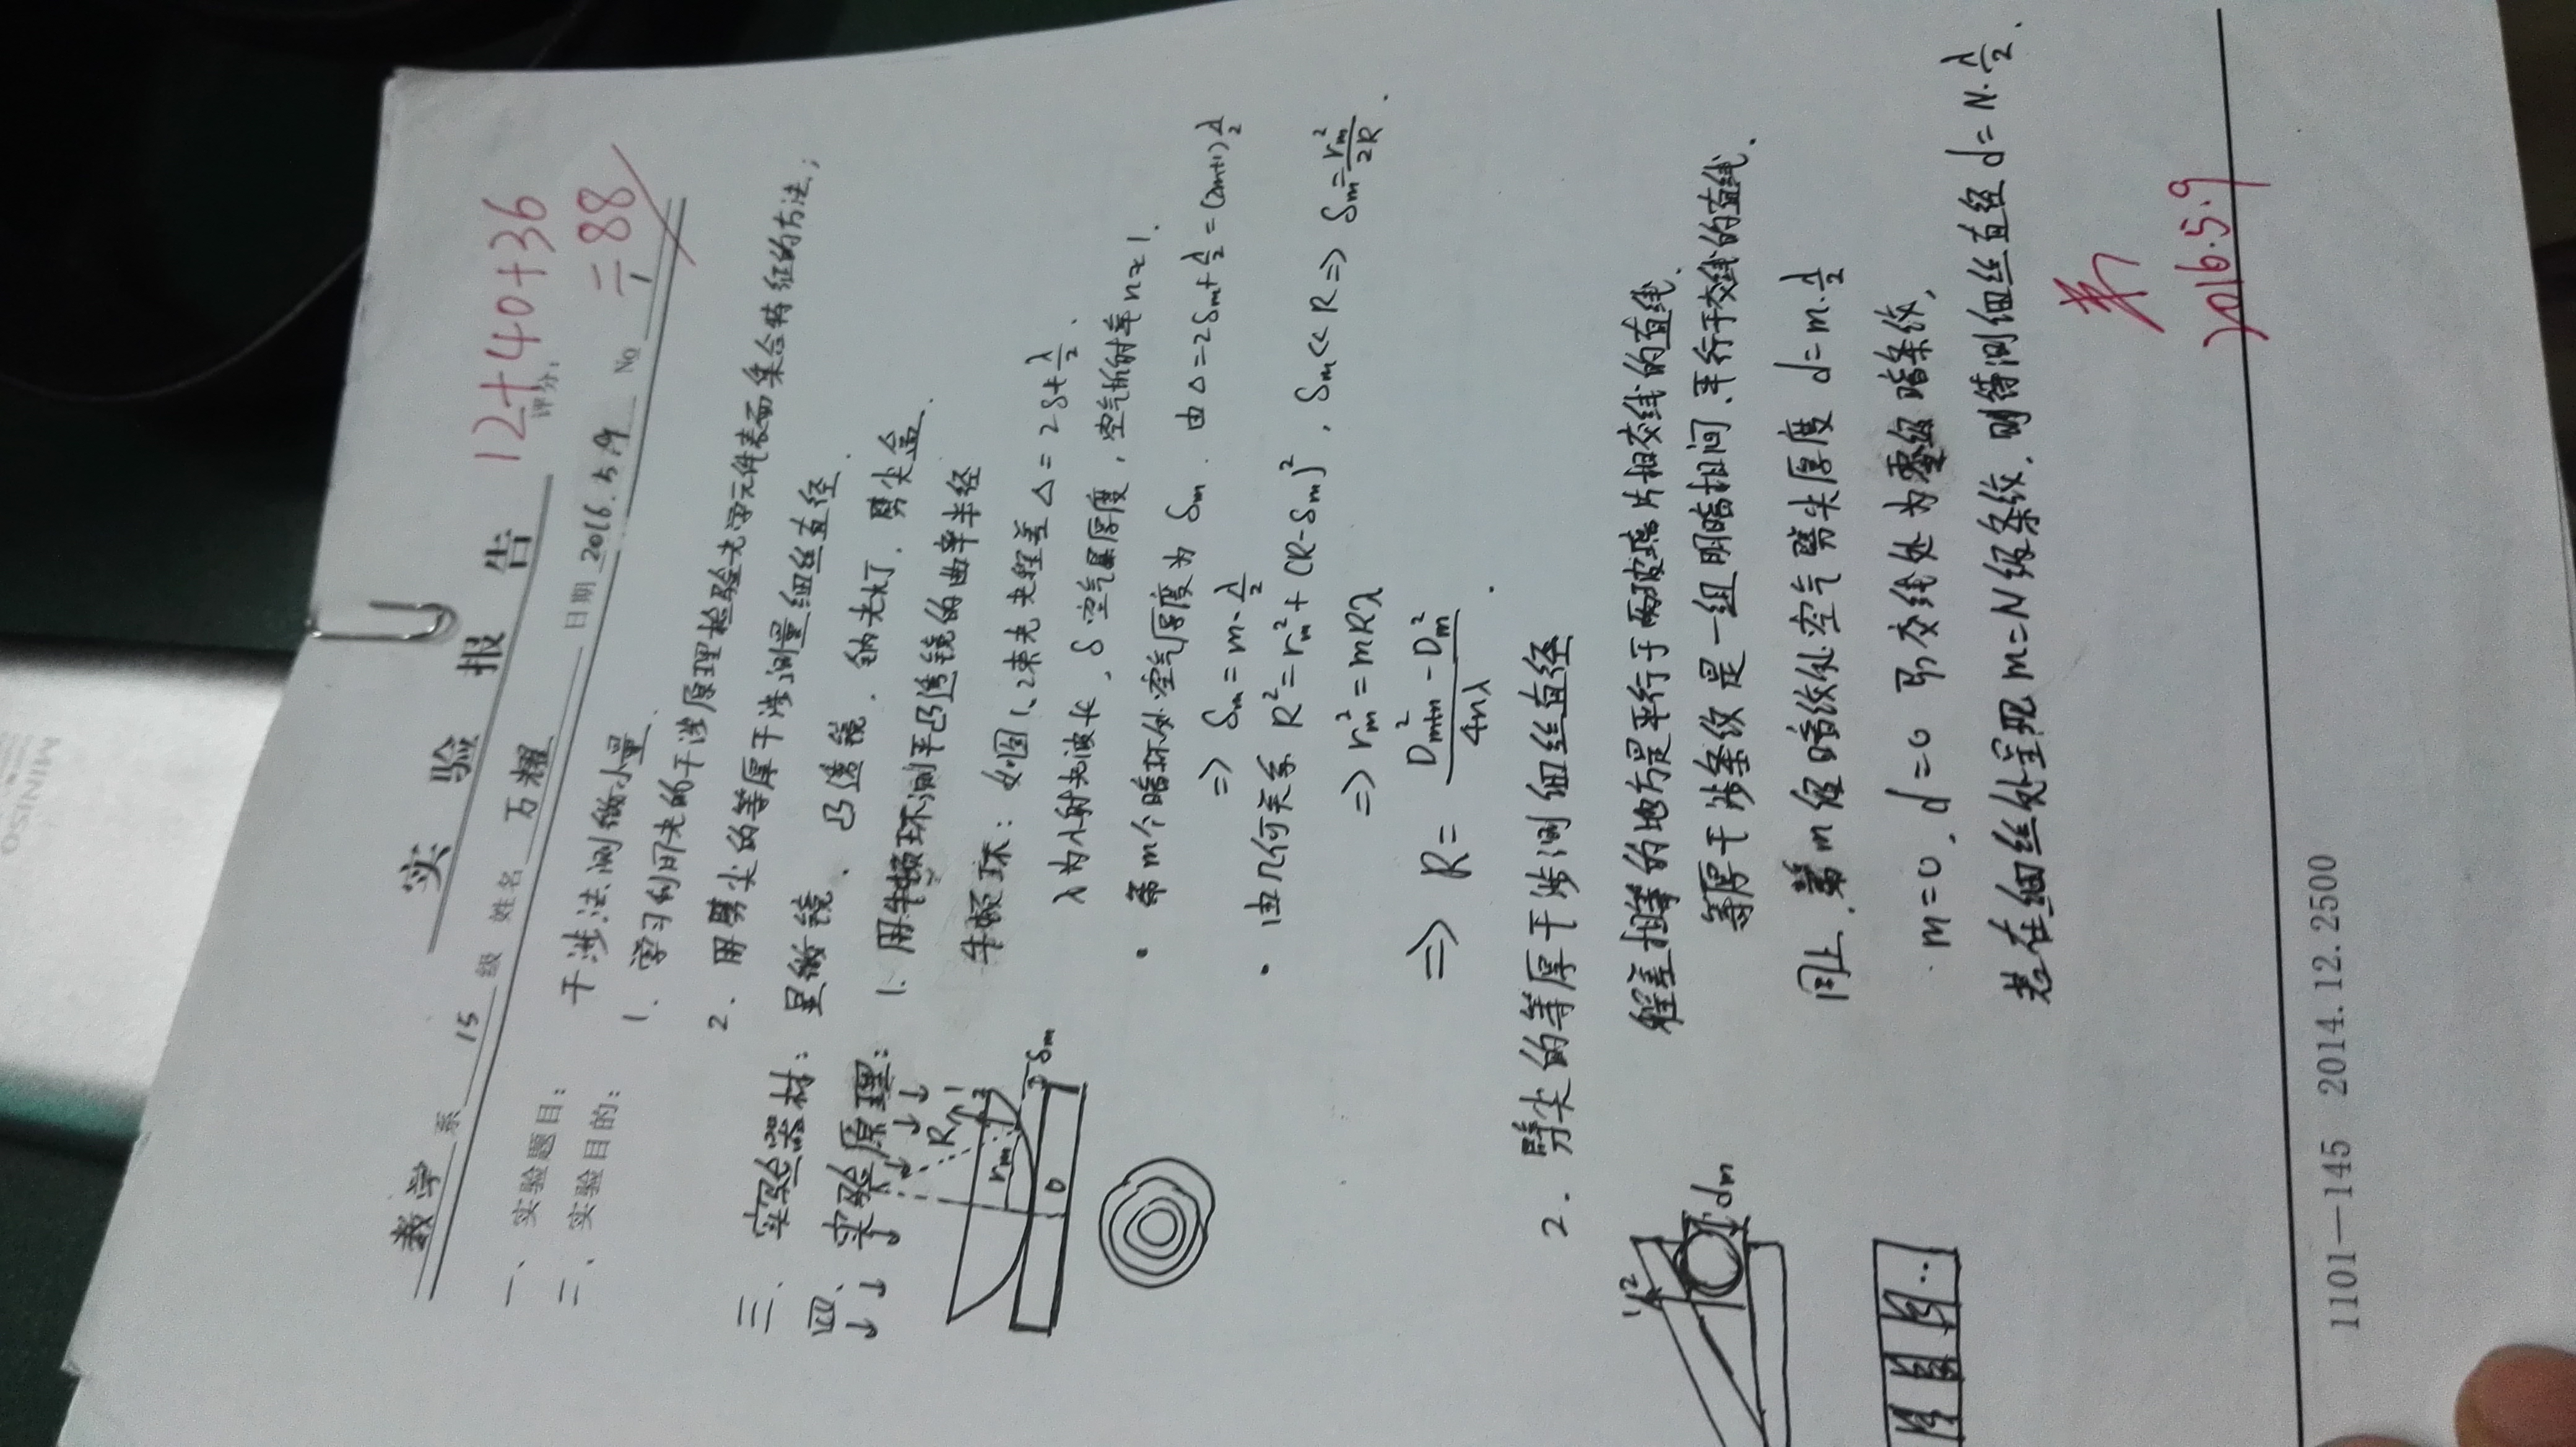 实验报告
12+40+36
评分:
=88
数学 系 15 级 姓名 万耀 日期 2016.5.9 No 1
一、实验题目: 干涉法测微小量.
二、实验目的: 1. 学习利用光的干涉原理检验光学元件表面集合特征的方法;
2. 用劈尖的等厚干涉测量细丝直径.
三、实验器材: 显微镜、凸透镜、钠光灯、劈尖盒.
四、实验原理: 1. 用牛顿环测平凸透镜的曲率半径
牛顿环: 如图1、2束光光程差 Δ=2δ+λ/2.
λ为入射光波长, δ空气层厚度, 空气折射率n≈1.
· 第m个暗环处空气厚度为δm. 由Δ=2δm+λ/2=(2m+1)λ/2
⇒ δm=m·λ/2
· 由几何关系 R²=rm²+(R-δm)², δm<<R ⇒ δm=rm²/2R.
⇒ rm²=mRλ
⇒ R=(D²m+n-D²m)/4nλ.
R
1
2
rm
δm
0
2. 劈尖的等厚干涉测细丝直径
程差相等的地方是平行于两玻璃片相交线的直线.
等厚干涉条纹是一组明暗相间、平行于交线的直线.
同上, 第m级暗纹处空气劈尖厚度 d=m·λ/2
m=0, d=0 即交线处为零级暗条纹,
若在细丝处呈现m=N级条纹, 则待测细丝直径d=N·λ/2.
1 2
dm
2016.5.9
1101-145 2014.12.2500
MINISO